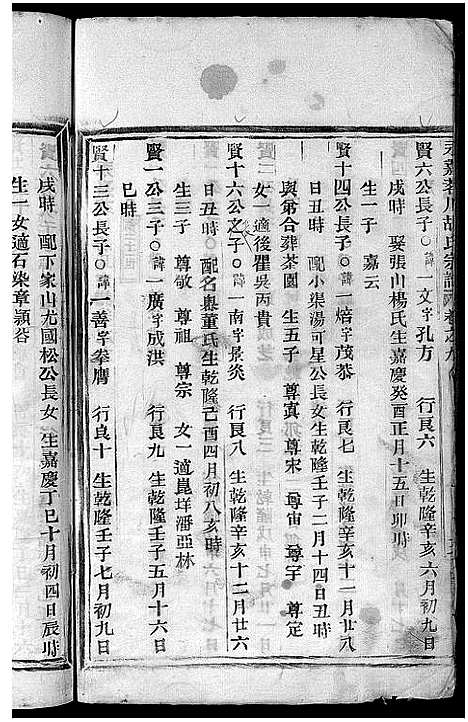 永嘉茗川胡氏宗譜 卷之九
賢六公長子○諱一文字孔方 行良六 生乾隆辛亥六月初九日
戌時 娶張山楊氏生嘉慶癸酉正月十五日卯時
生一子 嘉云
賢十四公長子○諱一焙字茂恭 行良七 生乾隆辛亥十一月廿八
日丑時 配小渠湯可星公長女生乾隆壬子二月十四日丑時
與弟合葬茶園 生五子 尊賓 尊宋 尊宙 尊宇 尊定
賢二 女一適後瞿吳丙貴
賢十六公之子○諱一南字景炎 行良八 生乾隆辛亥十二月廿六
日丑時 配名奧董氏生乾隆己酉四月初八亥時
生三子 尊敬 尊祖 尊宗 女一適崑垟潘亞林
賢一公三子○諱一廣字成洪 行良九 生乾隆壬子五月十六日
巳時
賢十三公長子○諱一善字拳膺 行良十 生乾隆壬子七月初九日
戌時 配下家山尤國松公長女 生嘉慶丁巳十月初四日辰時
生一女適石染章顯峇